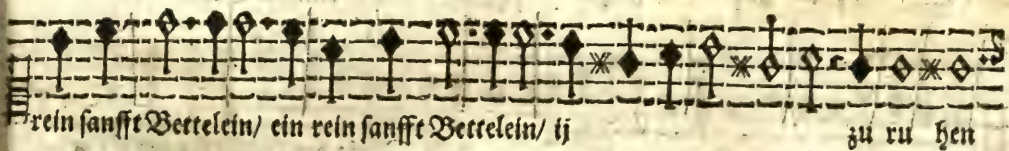 rein sanfft Bettelein/ ein rein sanfft Bettelein/ ij zu ru hen